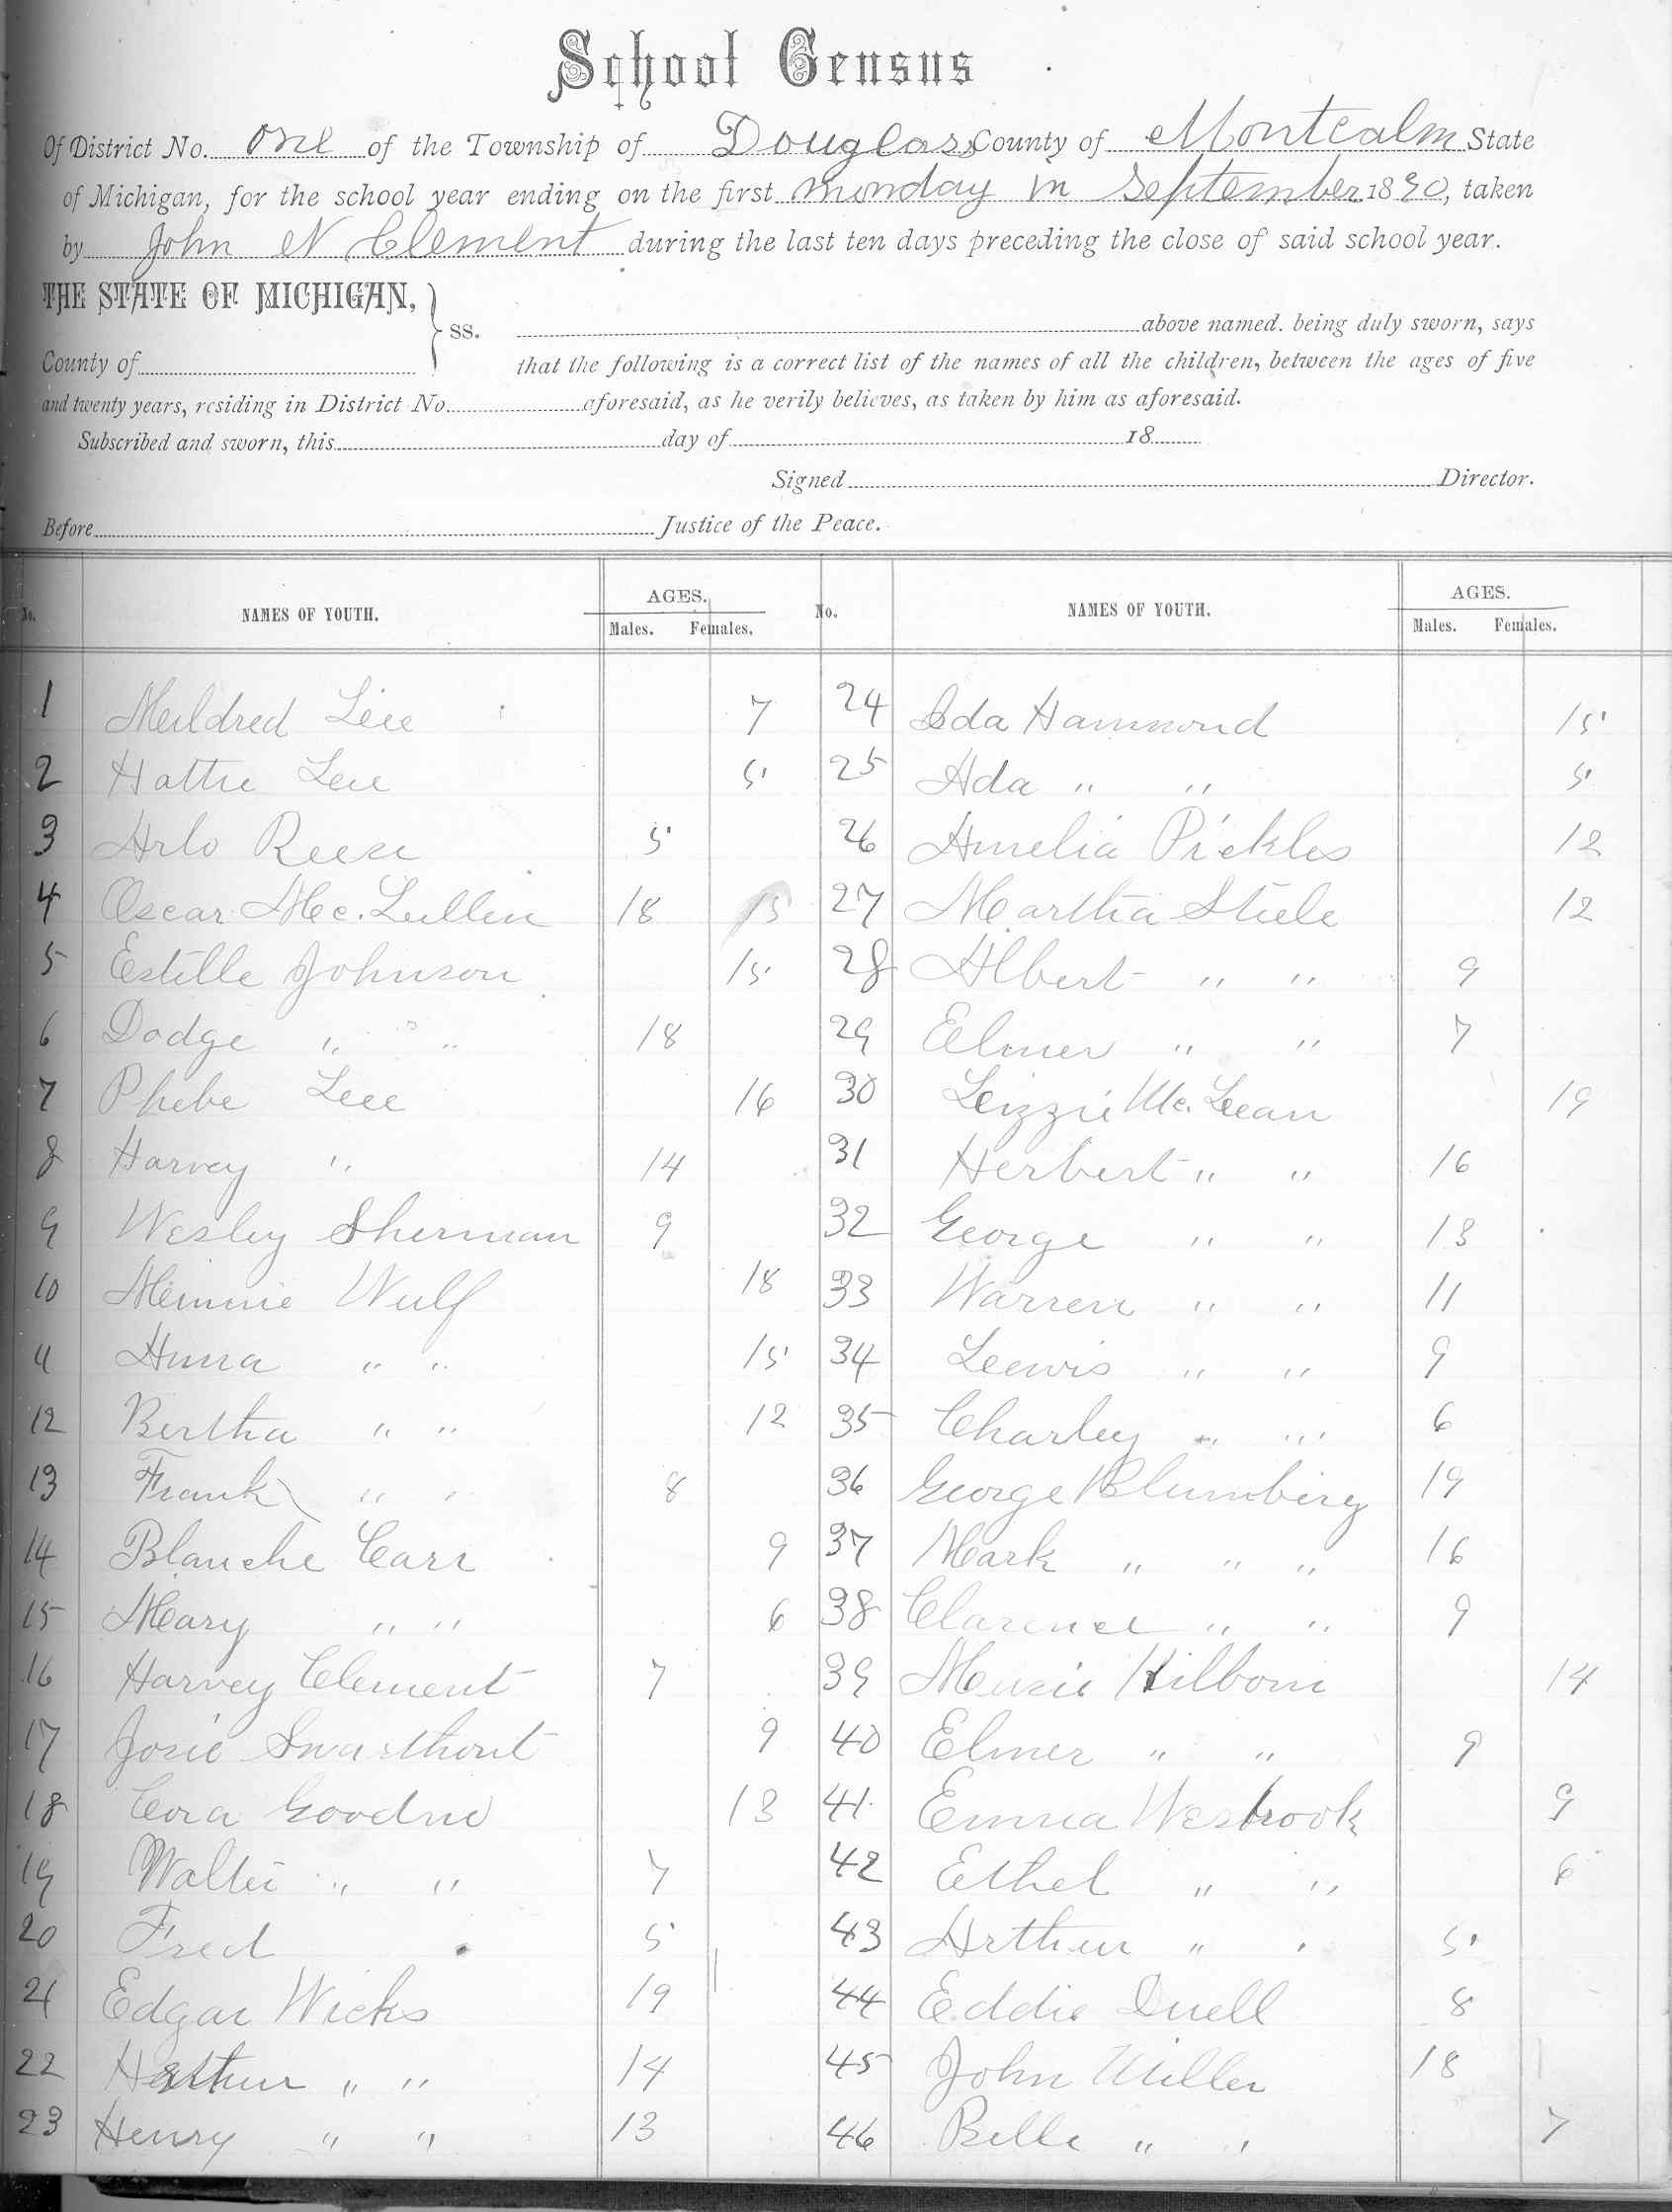 School Census
Of District No. one of the Township of Douglass County of Montcalm State
of Michigan, for the school year ending on the first monday in September 1890, taken
by John N Clement during the last ten days preceding the close of said school year.
THE STATE OF MICHIGAN,
ss.
above named. being duly sworn, says
County of
that the following is a correct list of the names of all the children, between the ages of five
and twenty years, residing in District No. aforesaid, as he verily believes, as taken by him as aforesaid.
Subscribed and sworn, this day of 18
Signed Director.
Before Justice of the Peace.
No. NAMES OF YOUTH. AGES. Males. Females.
1 Mildred Lee 7
2 Hattie Lee 5
3 Arlo Reese 5
4 Oscar Mc. Lullen 18 15
5 Estelle Johnson 15
6 Dodge " " 18
7 Phebe Lee 16
8 Harvey " 14
9 Wesley Sherman 9
10 Minnie Wulf 18
11 Anna " " 15
12 Bertha " " 12
13 Frank " " 8
14 Blanche Carr 9
15 Mary " " 6
16 Harvey Clement 7
17 Josie Swarthout 9
18 Cora Goodrie 13
19 Walter " " 7
20 Fred 5
21 Edgar Wicks 19
22 Arthur " " 14
23 Henry " " 13
No. NAMES OF YOUTH. AGES. Males. Females.
24 Ida Hammond 15
25 Ada " " 5
26 Amelia Pickles 12
27 Martha Stiele 12
28 Albert " " 9
29 Elmer " " 7
30 Lizzie Mc. Lean 19
31 Herbert " " 16
32 George " " 13
33 Warren " " 11
34 Lewis " " 9
35 Charley " " 6
36 George Blumberg 19
37 Mark " " " 16
38 Clarence " " 9
39 Hilborn 14
40 Elmer " " 9
41 Emma Wesbrook 9
42 Ethel " " 6
43 Arthur " " 5
44 Eddie Duell 8
45 John Miller 18
46 Belle " " 7